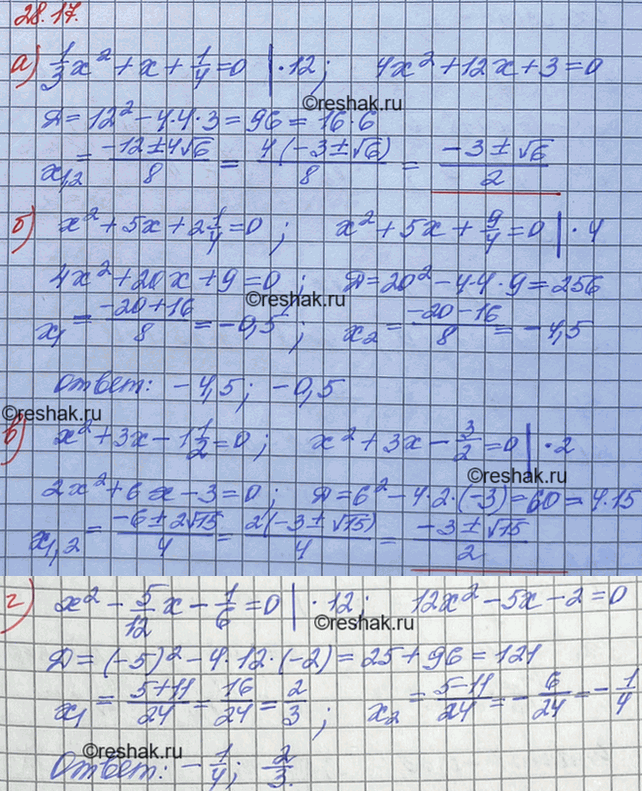 28.17.
а) 1/3 x² + x + 1/4 = 0 | · 12; 4x² + 12x + 3 = 0
©reshak.ru
Д = 12² - 4·4·3 = 96 = 16·6
x₁,₂ = (-12 ± 4√6)/8 = 4(-3 ± √6)/8 = (-3 ± √6)/2
б) x² + 5x + 2 1/4 = 0; x² + 5x + 9/4 = 0 | · 4
4x² + 20x + 9 = 0; Д = 20² - 4·4·9 = 256
©reshak.ru
x₁ = (-20 + 16)/8 = -0,5; x₂ = (-20 - 16)/8 = -4,5
Ответ: -4,5; -0,5
©reshak.ru
в) x² + 3x - 1 1/2 = 0; x² + 3x - 3/2 = 0 | · 2
©reshak.ru
2x² + 6x - 3 = 0; Д = 6² - 4·2·(-3) = 60 = 4·15
x₁,₂ = (-6 ± 2√15)/4 = 2(-3 ± √15)/4 = (-3 ± √15)/2
г) x² - 5/12 x - 1/6 = 0 | · 12; 12x² - 5x - 2 = 0
©reshak.ru
Д = (-5)² - 4·12·(-2) = 25 + 96 = 121
x₁ = (5+11)/24 = 16/24 = 2/3; x₂ = (5-11)/24 = -6/24 = -1/4
©reshak.ru
Ответ: -1/4; 2/3.